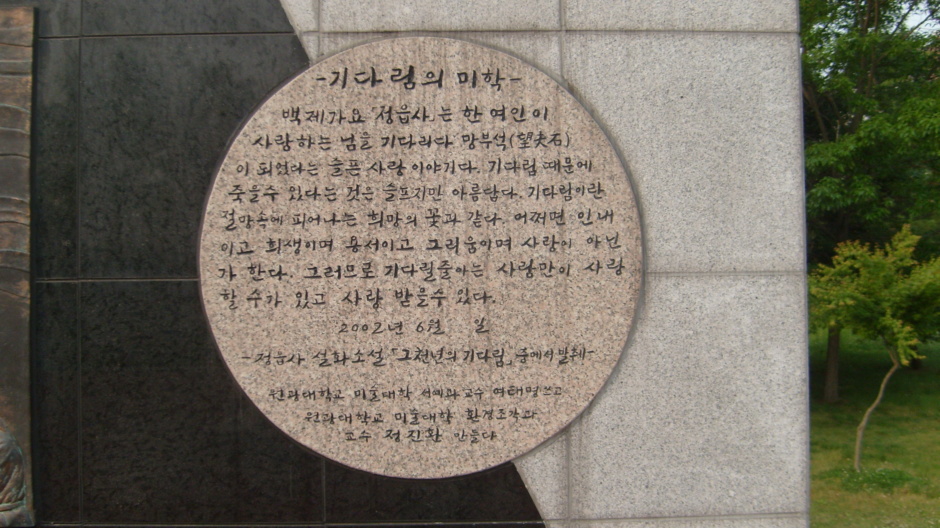 -기다림의 미학-
백제가요「정읍사」는 한 여인이
사랑하는 님을 기다리다 망부석(望夫石)
이 되었다는 슬픈 사랑 이야기다. 기다림 때문에
죽을수 있다는 것은 슬프지만 아름답다. 기다림이란
절망속에 피어나는 희망의 꽃과 같다. 어쩌면 인내
이고 희생이며 용서이고 그리움이며 사랑이 아닌
가 한다. 그러므로 기다릴줄아는 사람만이 사랑
할 수가 있고 사랑 받을수 있다.
2002년 6월 일
-정읍사 설화소설「그천년의 기다림」중에서 발췌-
원광대학교 미술대학 서예과 교수 여태명 쓰고
원광대학교 미술대학 환경조각과
교수 정진환 만들다